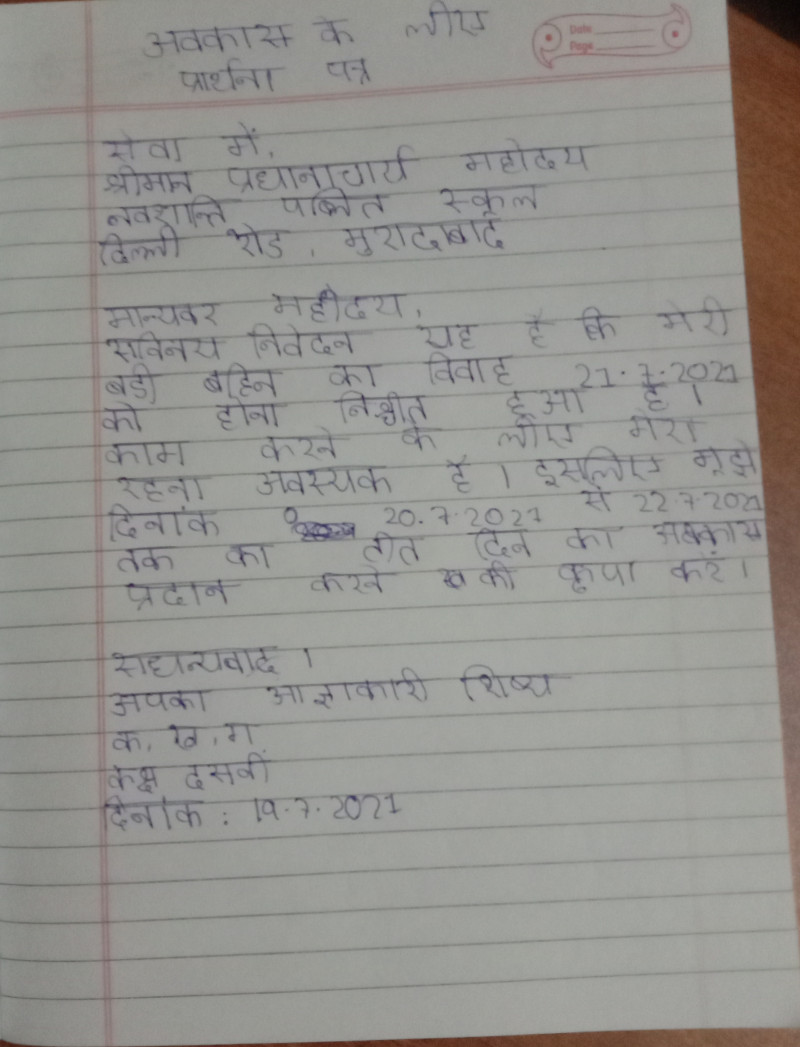 अवकास के लीए
Date
Page
प्रार्थना पत्र
सेवा में,
श्रीमान प्रधानाचार्य महोदय
नवशान्ति पब्लित स्कूल
दिल्ली रोड, मुरादाबाद
मान्यवर महोदय,
सविनय निवेदन यह है कि मेरी
बडी बहिन का विवाह 21.7.2021
को होना निश्चीत हूआ है ।
काम करने के लीए मेरा
रहना अवस्यक है । इसलिए मूझे
दिनांक 20.7.2021 से 22.7.2021
तक का तीत दिन का अवकास
प्रदान करने की कृपा करें ।
सधन्यवाद ।
अपका आज्ञाकारी शिष्य
क, ख, ग
कक्ष दसवीं
दिनांक : 19.7.2021